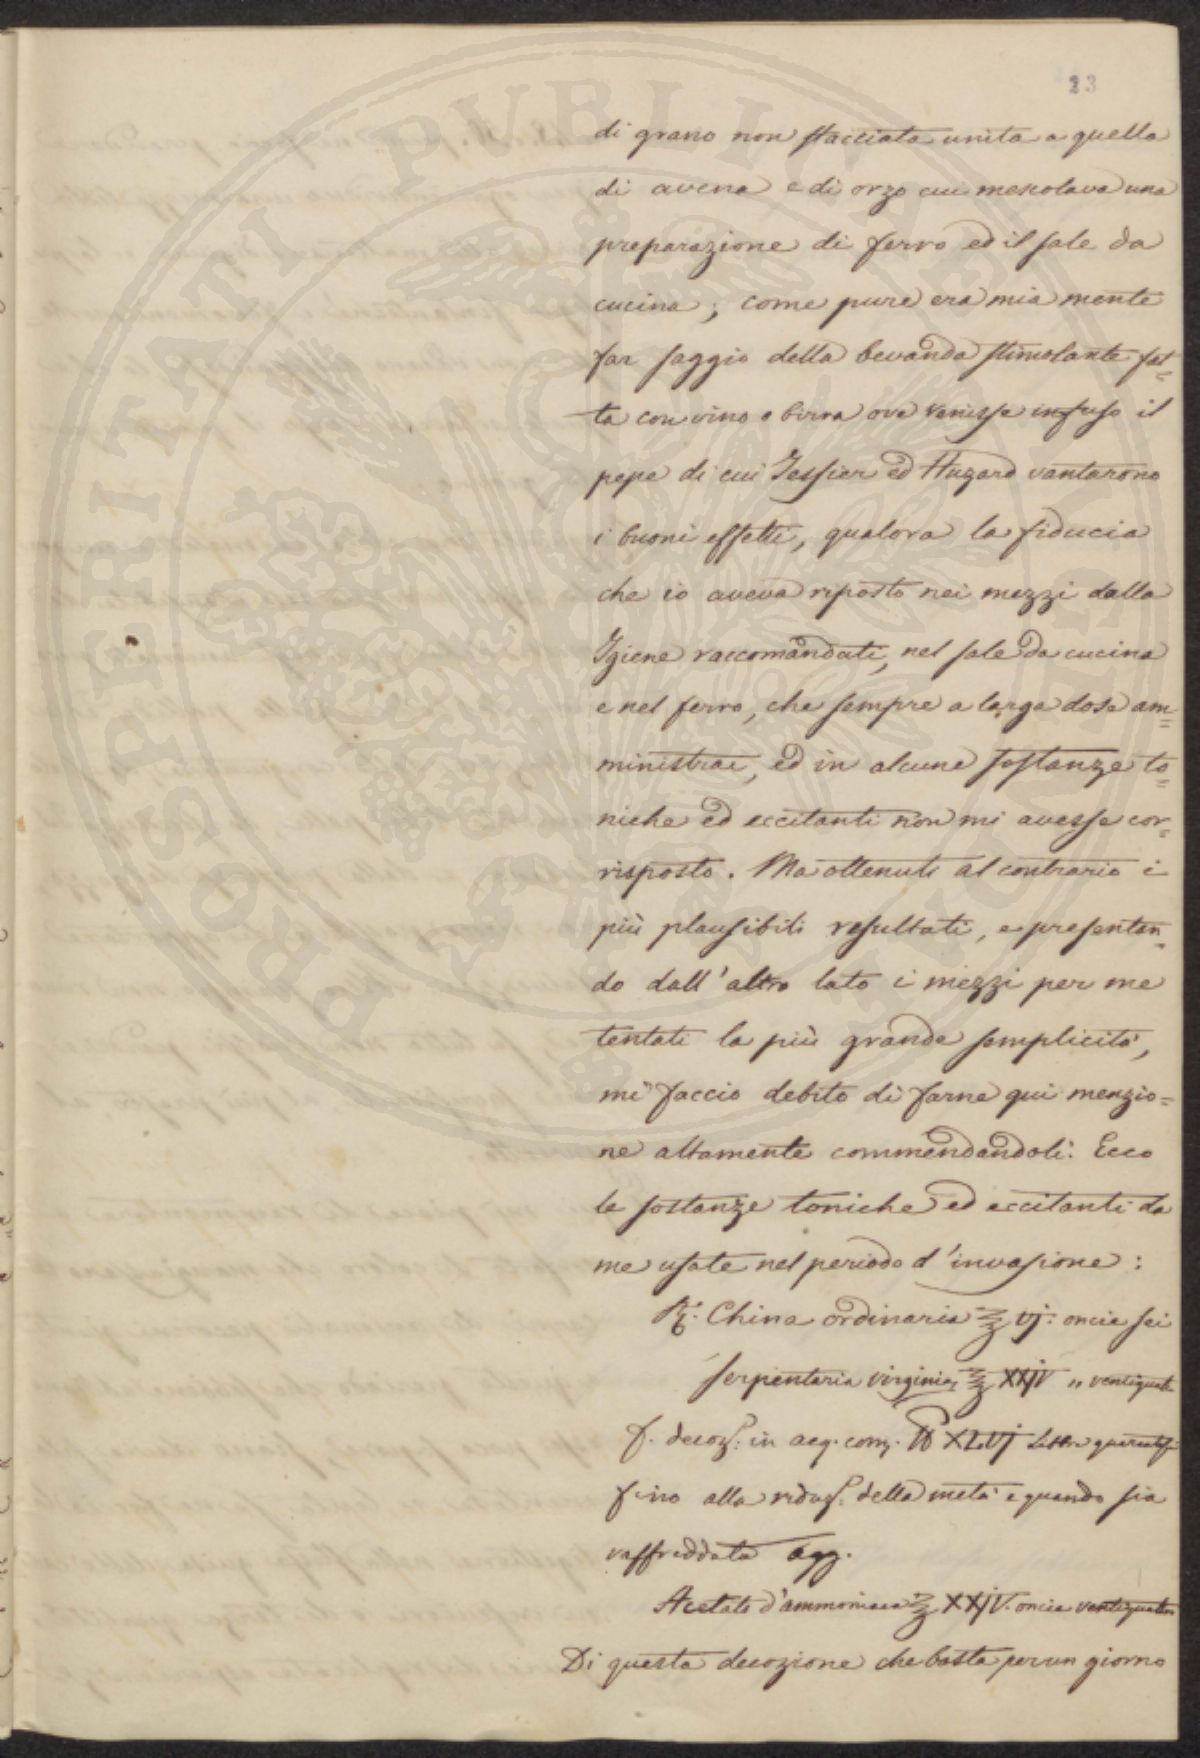 23
di grano non stacciata unita a quella
di avena e di orzo cui mescolava una
preparazione di ferro ed il sale da
cucina; come pure era mia mente
far saggio della bevanda stimolante fat=
ta con vino o birra ove venisse infuso il
pepe di cui Tessier ed Huzard vantarono
i buoni effetti, qualora la fiducia
che io aveva riposto nei mezzi dalla
Igiene raccomandati, nel sale da cucina
e nel ferro, che sempre a larga dose am=
ministrai, ed in alcune sostanze to=
niche ed eccitanti non mi avesse cor=
risposto. Ma ottenuti al contrario i
più plausibili resultati, e presentan=
do dall'altro lato i mezzi per me
tentati la più grande semplicità,
mi faccio debito di farne qui menzio=
ne altamente commendandoli. Ecco
le sostanze toniche ed eccitanti da
me usate nel periodo d'invasione:
R. China ordinaria ℥ vj. oncie sei
Serpentaria virginia ℥ XXjV " ventiquatt
f. decoz: in acq. com. ℔ XLVj
fino alla riduz: della metà e quando sia
raffreddata agg.
Acetato d'ammoniaca ℥ XXjV. oncie ventiquattro
Di questa decozione che basta per un giorno
PROSPERITATI PUBLICAE